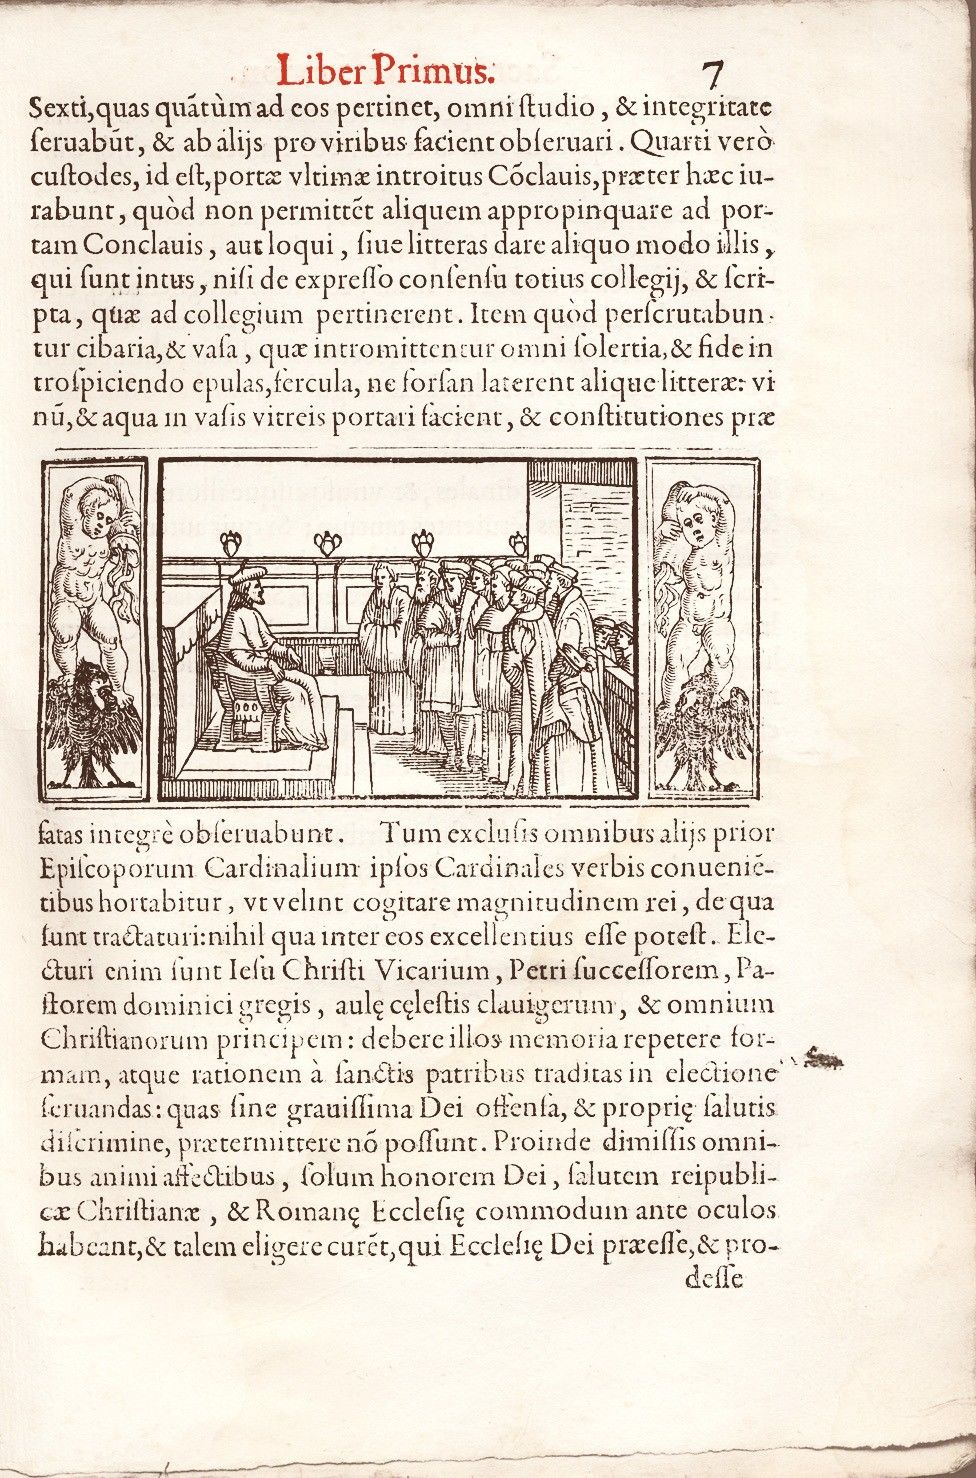 Liber Primus. 7
Sexti, quas quãtùm ad eos pertinet, omni ſtudio, & integritate
ſeruabũt, & ab alijs pro viribus facient obſeruari. Quarti verò
cuſtodes, id eſt, portæ vltimæ introitus Cõclauis, præter hæc iu-
rabunt, quòd non permittẽt aliquem appropinquare ad por-
tam Conclauis, aut loqui, ſiue litteras dare aliquo modo illis,
qui ſunt intus, niſi de expreſſo conſenſu totius collegij, & ſcri-
pta, quæ ad collegium pertinerent. Item quòd perſcrutabun-
tur cibaria, & vaſa, quæ intromittentur omni ſolertia, & fide in
troſpiciendo epulas, fercula, ne forſan laterent alique litteræ: vi
nũ, & aqua in vaſis vitreis portari facient, & conſtitutiones præ
fatas integrè obſeruabunt. Tum excluſis omnibus alijs prior
Epiſcoporum Cardinalium ipſos Cardinales verbis conueniẽ-
tibus hortabitur, vt velint cogitare magnitudinem rei, de qua
ſunt tractaturi: nihil qua inter eos excellentius eſſe poteſt. Ele-
cturi enim ſunt Ieſu Chriſti Vicarium, Petri ſucceſſorem, Pa-
ſtorem dominici gregis, aulę cęleſtis clauigerum, & omnium
Chriſtianorum principem: debere illos memoria repetere for-
mam, atque rationem à ſanctis patribus traditas in electione
ſeruandas: quas ſine grauiſſima Dei offenſa, & proprię ſalutis
diſcrimine, prætermittere nõ poſſunt. Proinde dimiſſis omni-
bus animi affectibus, ſolum honorem Dei, ſalutem reipubli-
cæ Chriſtianæ, & Romanę Eccleſię commodum ante oculos
habeant, & talem eligere curẽt, qui Eccleſię Dei præeſſe, & pro-
deſſe